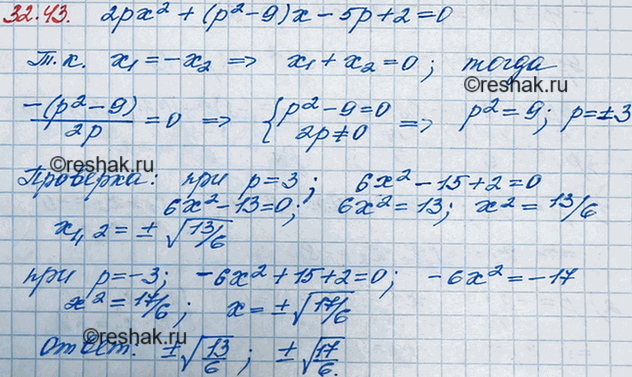 32.43. 2px² + (p² - 9)x - 5p + 2 = 0
Т.к. x₁ = -x₂ => x₁ + x₂ = 0; тогда
-(p² - 9)/2p = 0 => {p² - 9 = 0 2p ≠ 0 => p² = 9; p = ±3
©reshak.ru
©reshak.ru
Проверка: при p = 3; 6x² - 15 + 2 = 0
6x² - 13 = 0; 6x² = 13; x² = 13/6
x₁,₂ = ± √13/6
при p = -3; -6x² + 15 + 2 = 0; -6x² = -17
x² = 17/6; x = ± √17/6
©reshak.ru
Ответ: ±√13/6; ±√17/6.